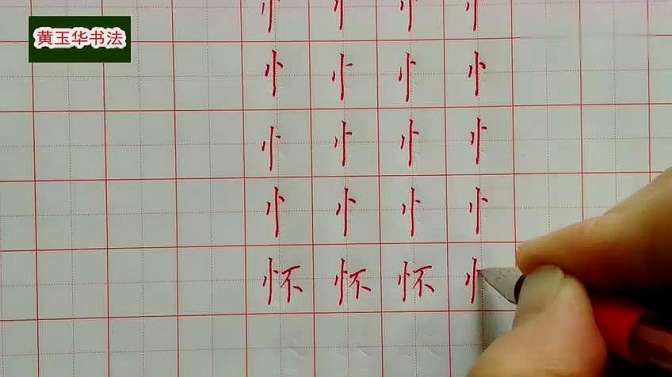 黄玉华书法
忄 忄 忄 忄
忄 忄 忄 忄
忄 忄 忄 忄
忄 忄 忄 忄
忄 忄 忄 忄
怀 怀 怀 忄